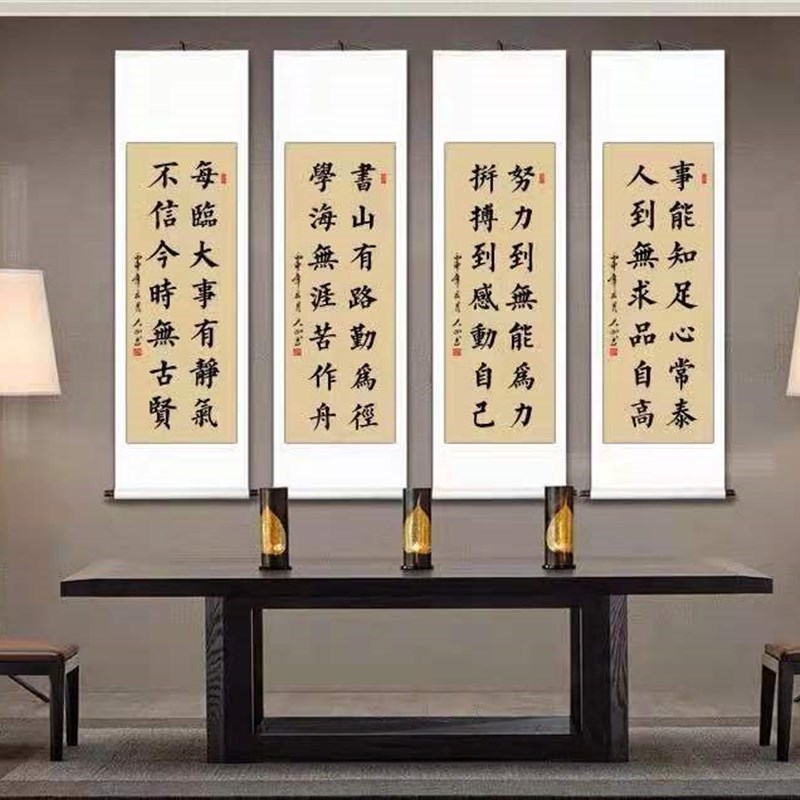 事能知足心常泰
人到無求品自高
努力到無能爲力
拼搏到感動自己
書山有路勤爲徑
學海無涯苦作舟
每臨大事有靜氣
不信今時無古賢